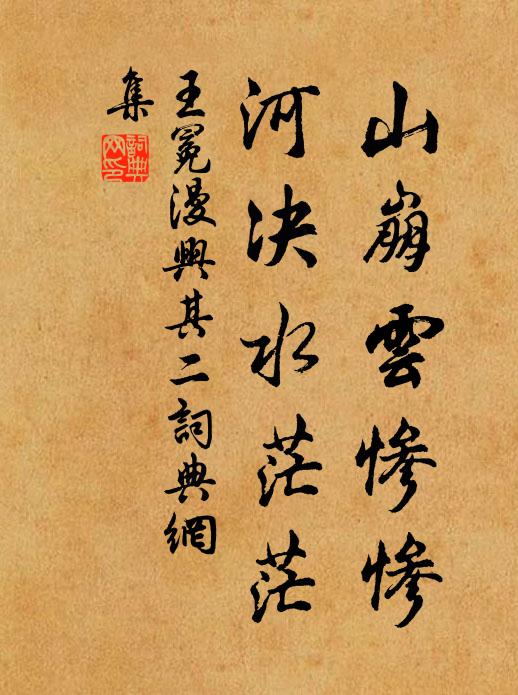 山崩雲慘慘
河決水茫茫
王冕漫興其二詞典網
集
詞典網印